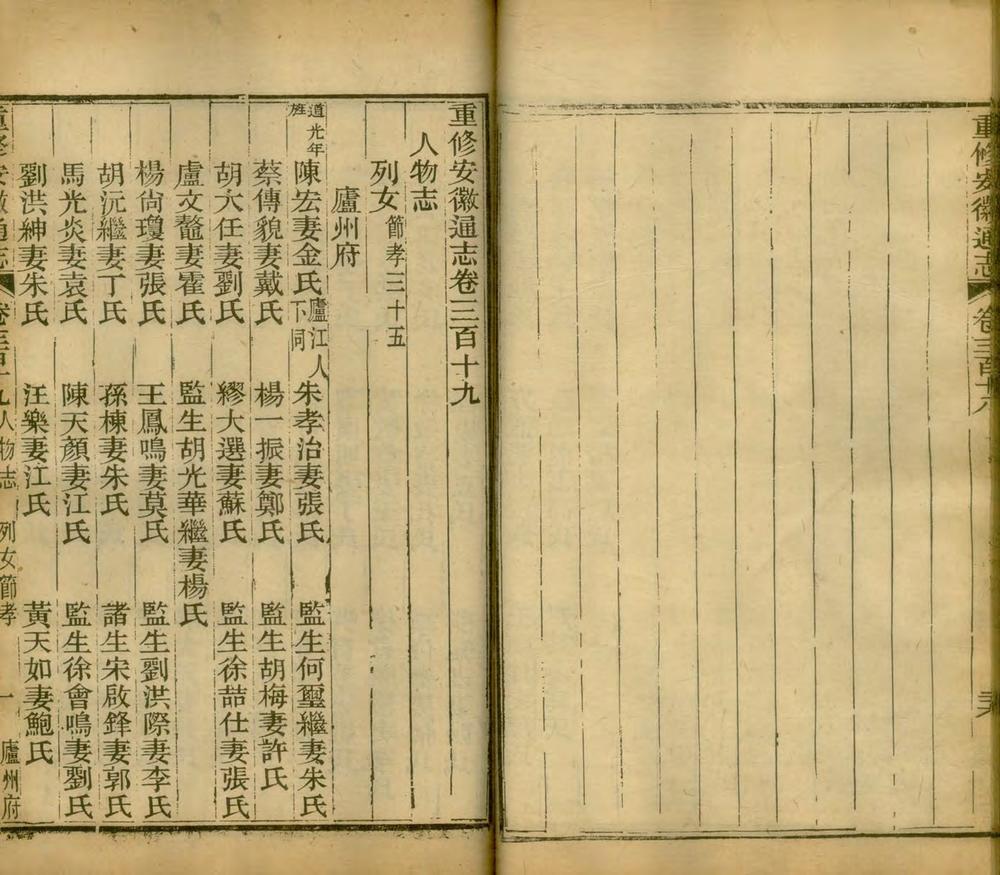 重修安徽通志
重修安徽通志卷三百十九
人物志
列女節孝三十五
廬州府
道光年旌
陳宏妻金氏廬江人下同 朱孝治妻張氏 監生何璽繼妻朱氏
蔡傳貌妻戴氏 楊一振妻鄭氏 監生胡梅妻許氏
胡大任妻劉氏 繆大選妻蘇氏 監生徐喆仕妻張氏
盧文鼇妻霍氏 監生胡光華繼妻楊氏
楊尙瓊妻張氏 王鳳鳴妻莫氏 監生劉洪際妻李氏
胡沅繼妻丁氏 孫棟妻朱氏 諸生宋啟鋒妻郭氏
馬光炎妻袁氏 陳天顏妻江氏 監生徐會鳴妻劉氏
劉洪紳妻朱氏 汪樂妻江氏 黃天如妻鮑氏
重修安徽通志 卷三百十九人物志 列女節孝 一 廬州府